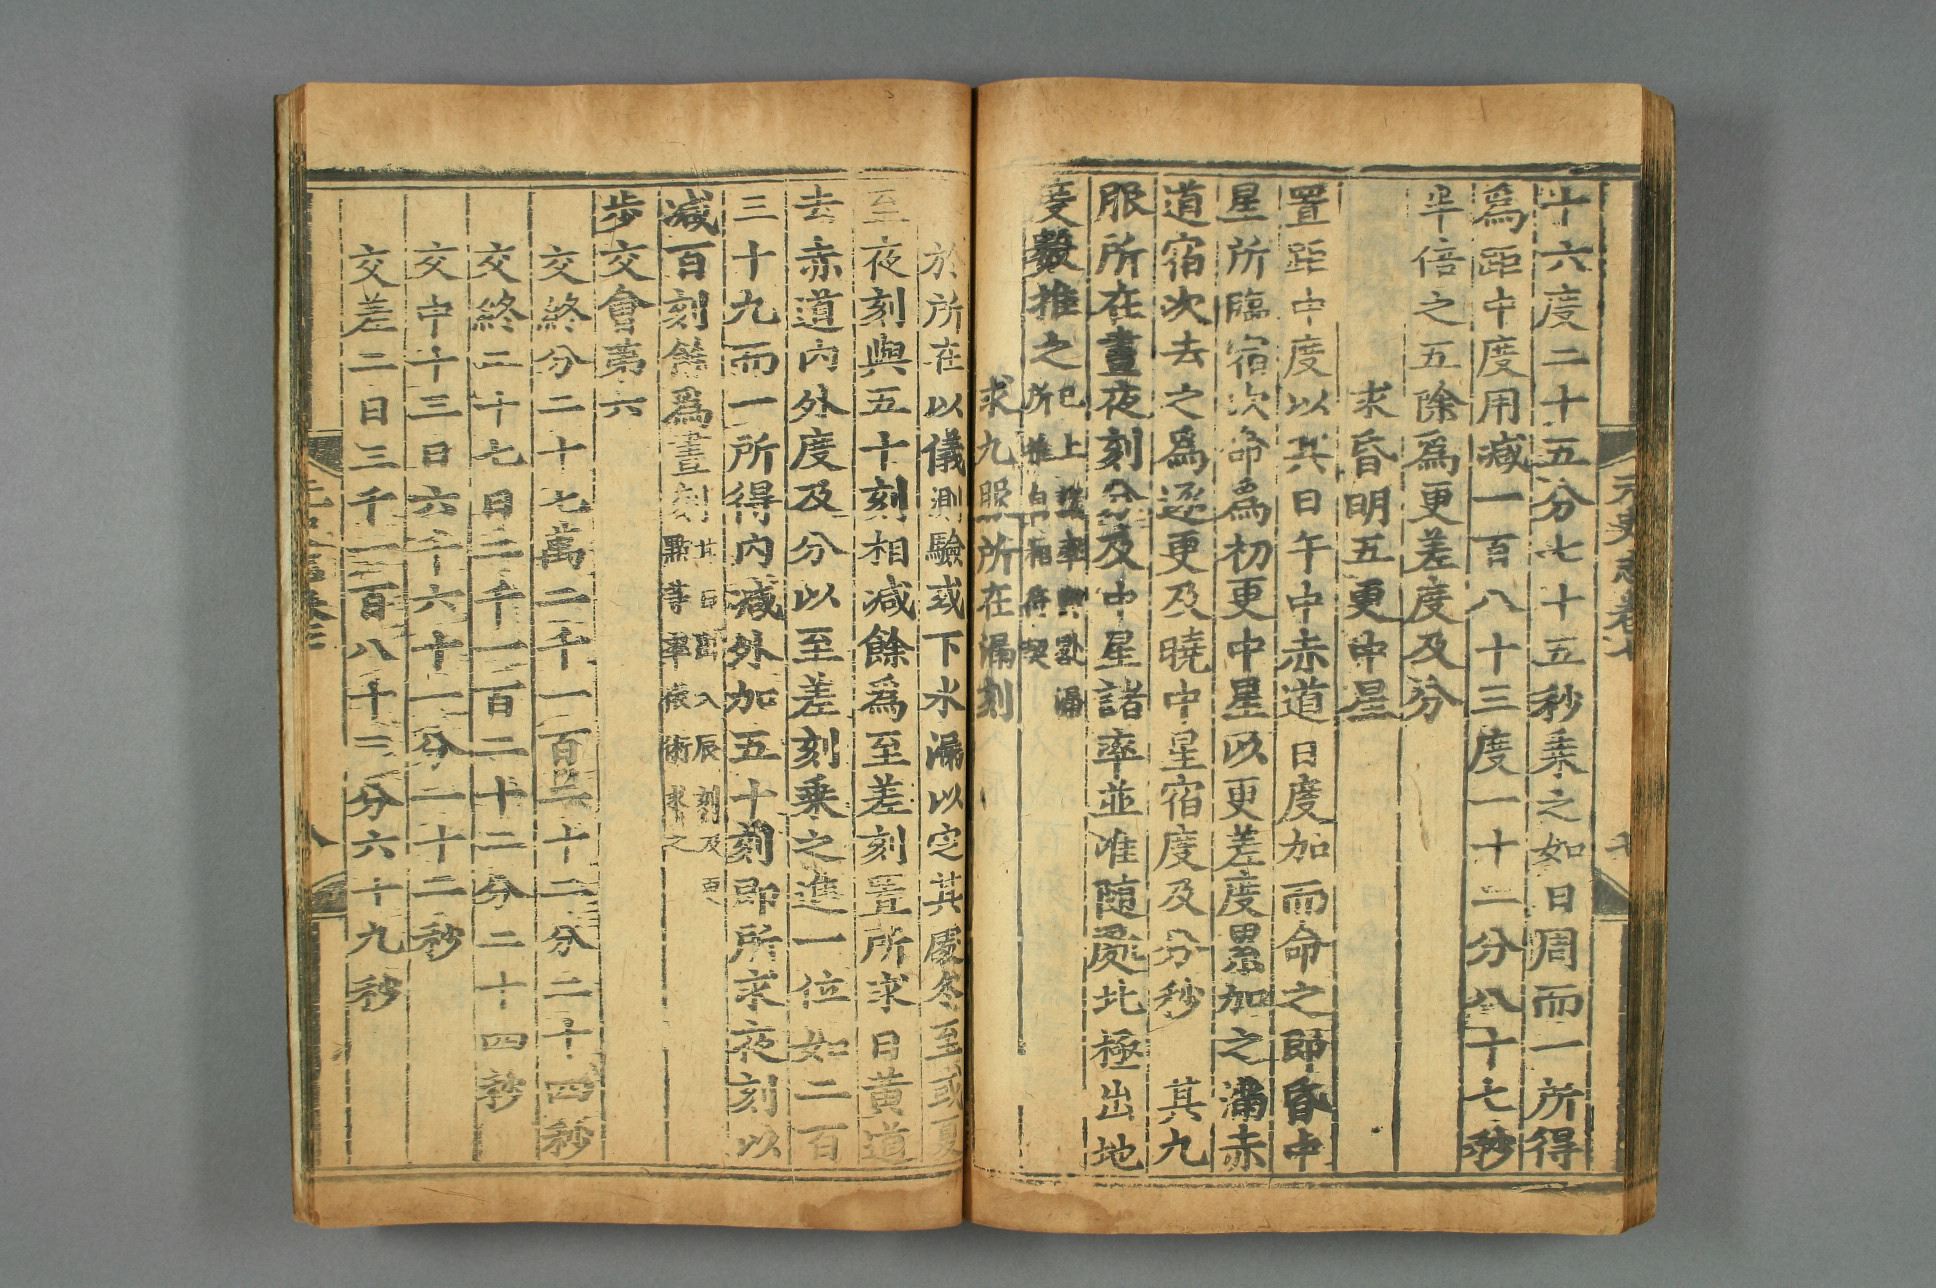 十六度二十五分七十五秒乘之如日周而一所得
爲距中度用減一百八十三度一十二分八十七秒
半倍之五除爲更差度及分
求昏明五更中星
置距中度以其日午中赤道日度加而命之卽昏中
星所臨宿次命爲初更中星以更差度累加之滿赤
道宿次去之爲逐更及曉中星宿度及分秒 其九
服所在晝夜刻分及中星諸率並准隨處北極出地
度數推之 已上諸率與晷漏
所推自相符契
求九服所在漏刻
於所在以儀測驗或下水漏以定其處冬至或夏
至夜刻與五十刻相減餘爲至差刻置所求日黃道
去赤道內外度及分以至差刻乘之進一位如二百
三十九而一所得內減外加五十刻卽所求夜刻以
減百刻餘爲晝刻 其日出入辰刻及更
點等率依術求之
步交會第六
交終分二十七萬二千一百二十二分二十四秒
交終二十七日二千一百二十二分二十四秒
交中十三日六千六十一分一十二秒
交差二日三千一百八十三分六十九秒
元史志卷七